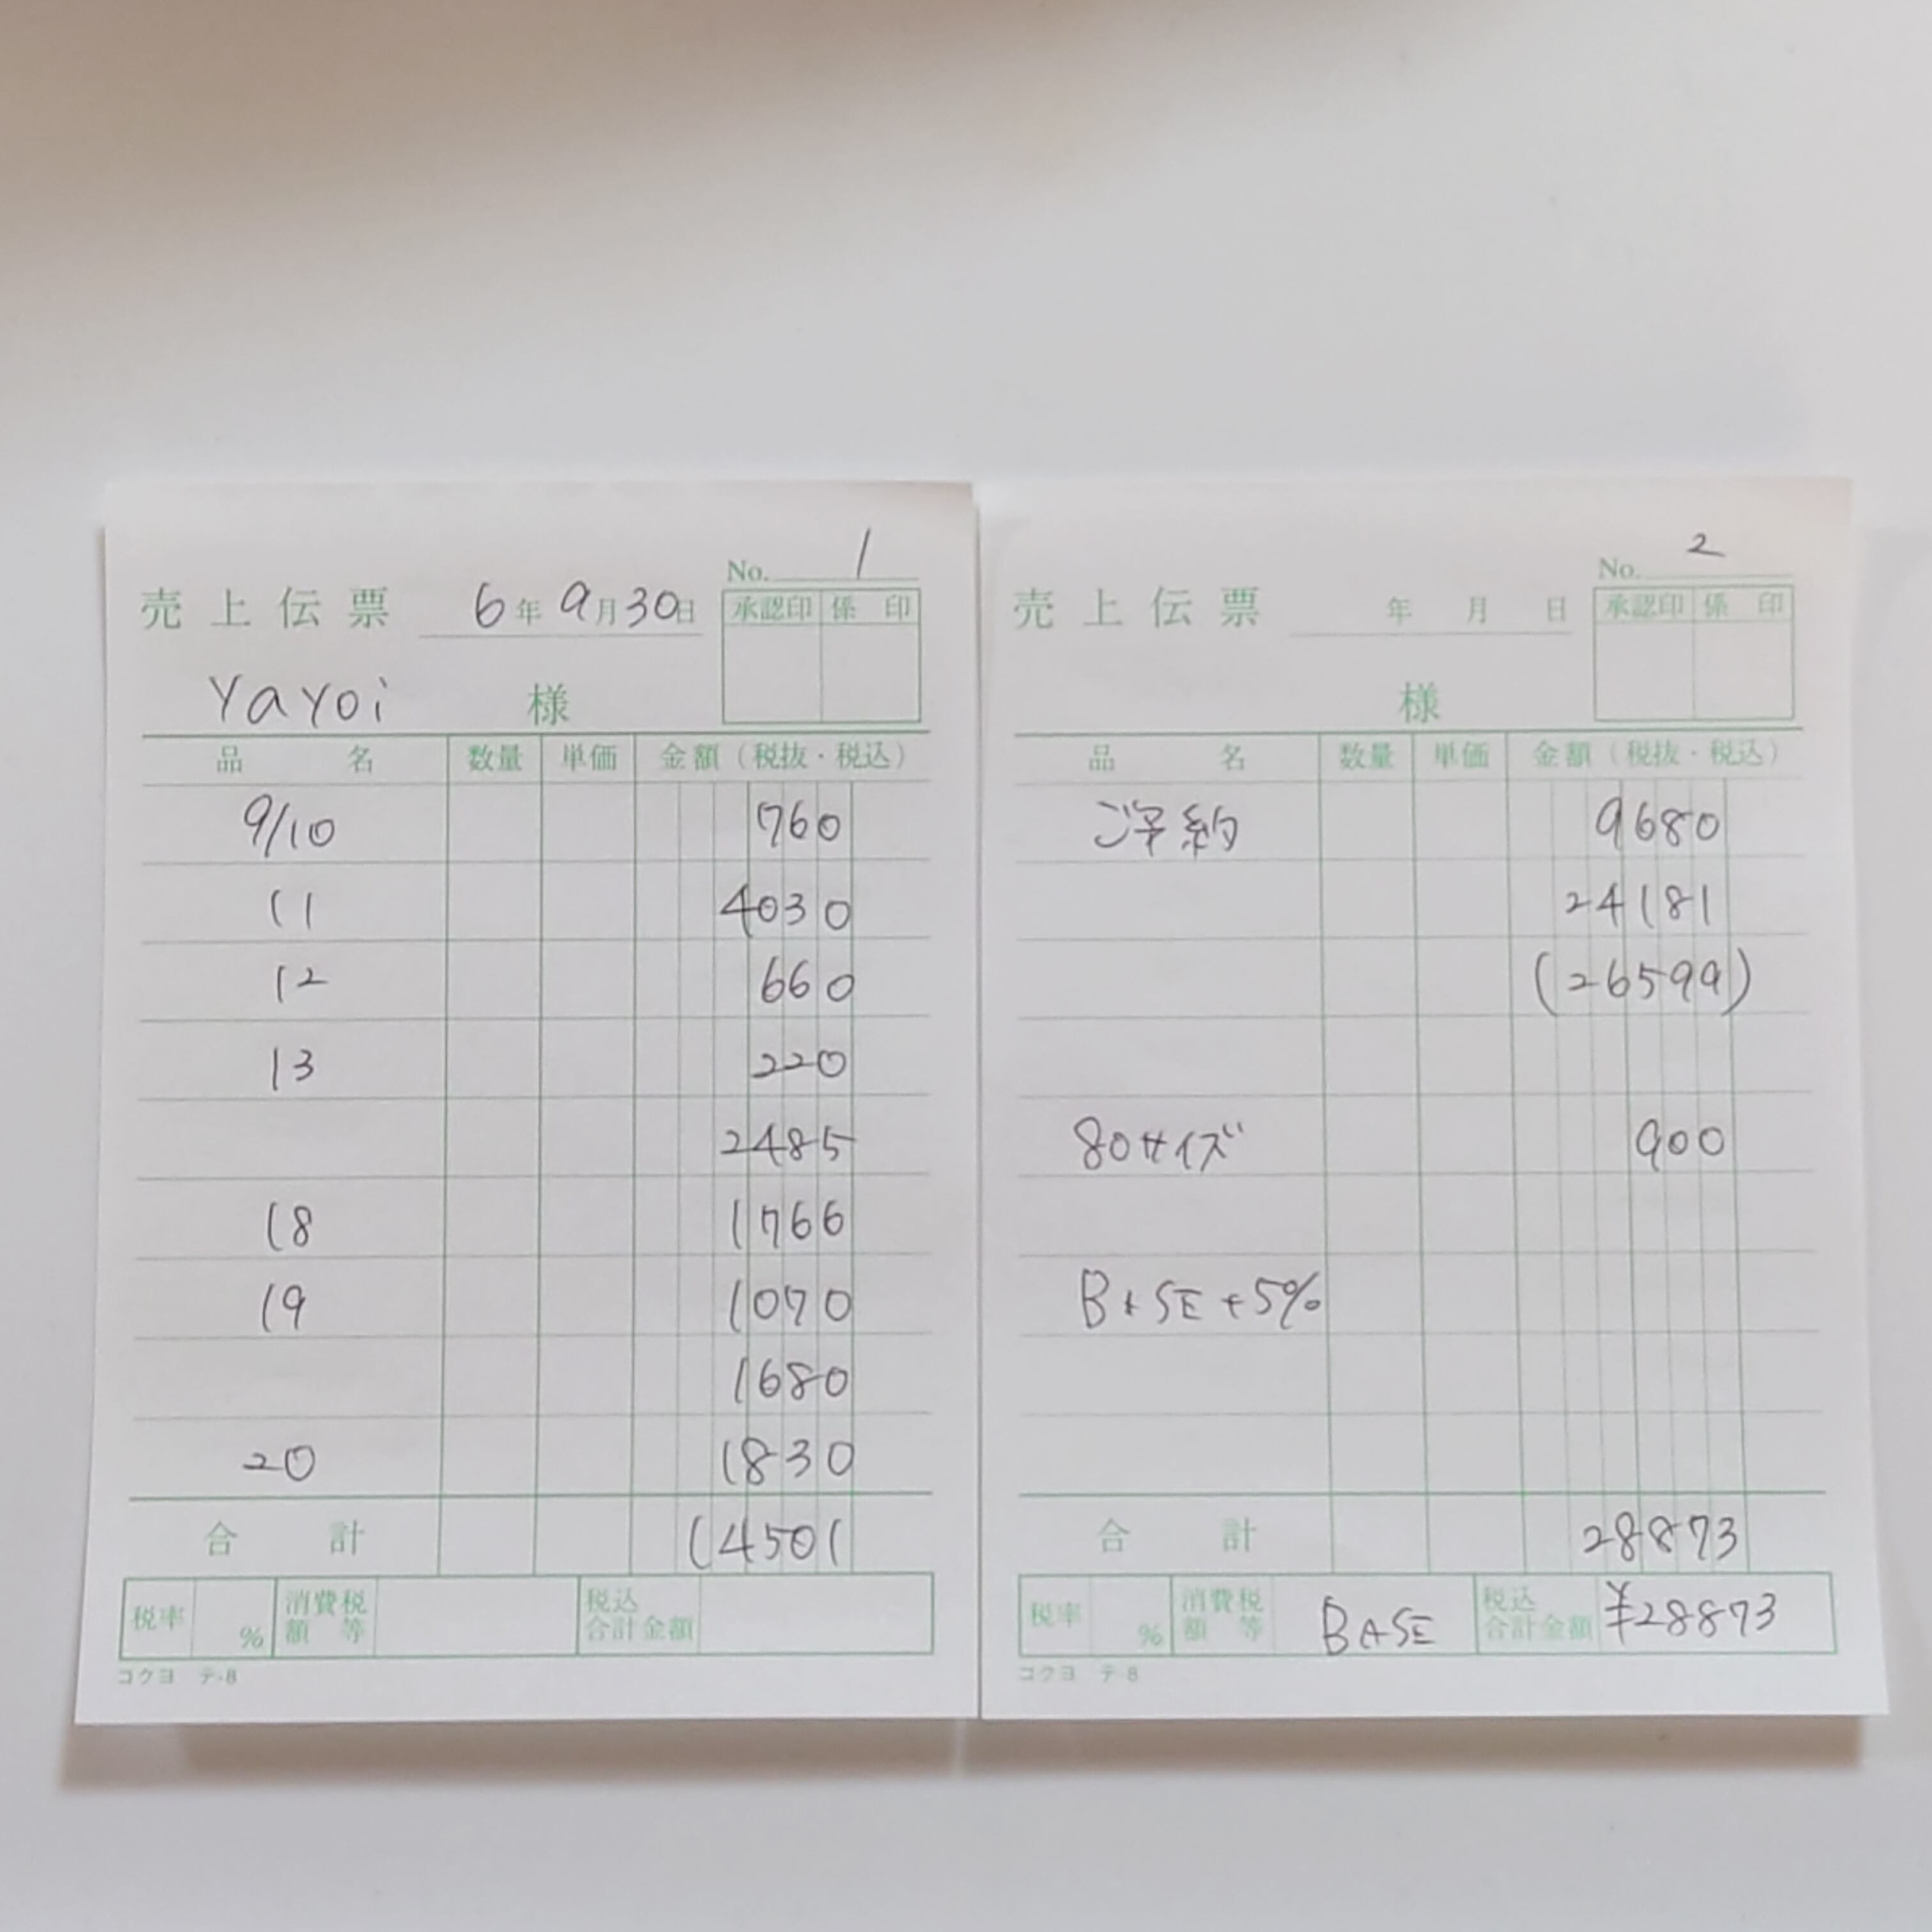 No. 1
売上伝票 6年9月30日
承認印 係印
Yayoi 様
品名 数量 単価 金額(税抜・税込)
9/10 760
11 4030
12 660
13 220
2485
18 1766
19 1070
1680
20 1830
合計 14501
税率 % 消費税額等 税込合計金額
コクヨ テ-8
No. 2
売上伝票 年 月 日
承認印 係印
様
品名 数量 単価 金額(税抜・税込)
ご予約 9680
24181
(26599)
80サイズ 900
BASE+5%
合計 28873
税率 % 消費税額等 BASE 税込合計金額 ¥28873
コクヨ テ-8